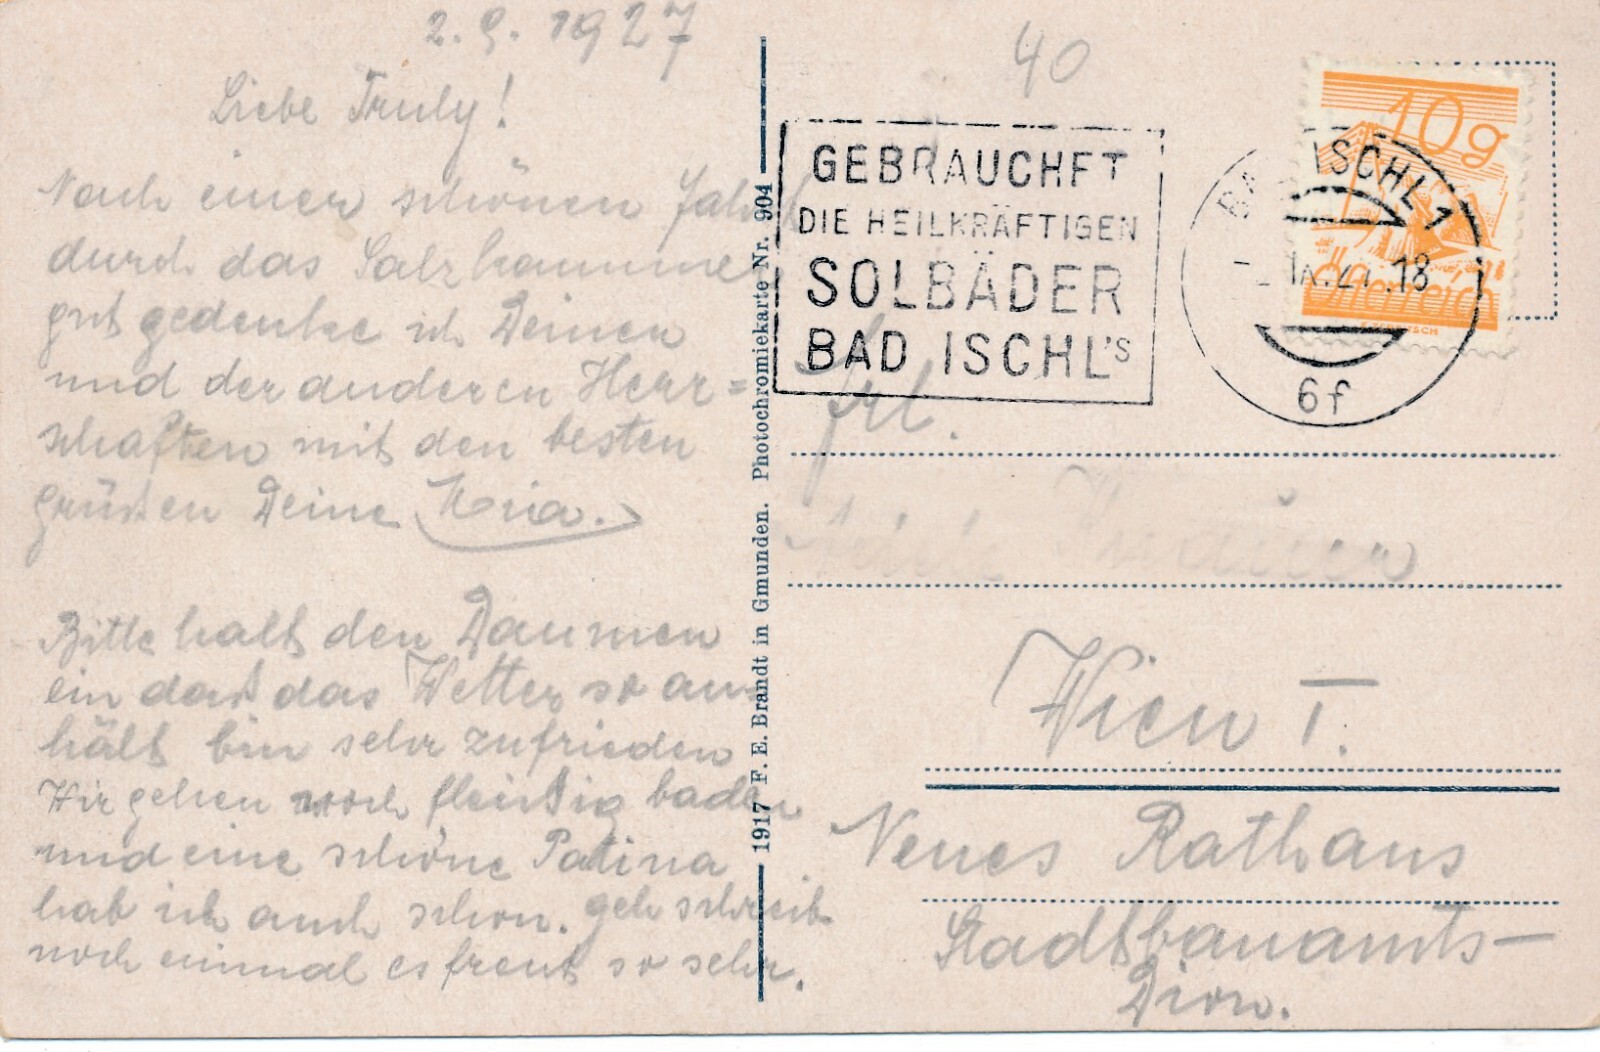 2.9.1927
Liebe Truly!
Nach einer schönen Fahrt
durch das Salzkammer
gut gedenke ich Deinen
und der anderen Herr=
schaften mit den besten
grüßen Deine
Bitte halt den Daumen
ein daß das Wetter so an=
hält bin sehr zufrieden
Wir gehen noch fleißig baden
und eine schöne Patina
hab ich auch schon. geh schreib
noch einmal es freut so sehr.
1917 F. E. Brandt in Gmunden. Photochromiekarte Nr. 904
40
GEBRAUCHET
DIE HEILKRÄFTIGEN
SOLBÄDER
BAD ISCHL'S
10g
Österreich
BAD ISCHL 1
IX.27.18
6f
Frl.
Wien I.
Neues Rathaus
Stadtbauamts-
Dion.